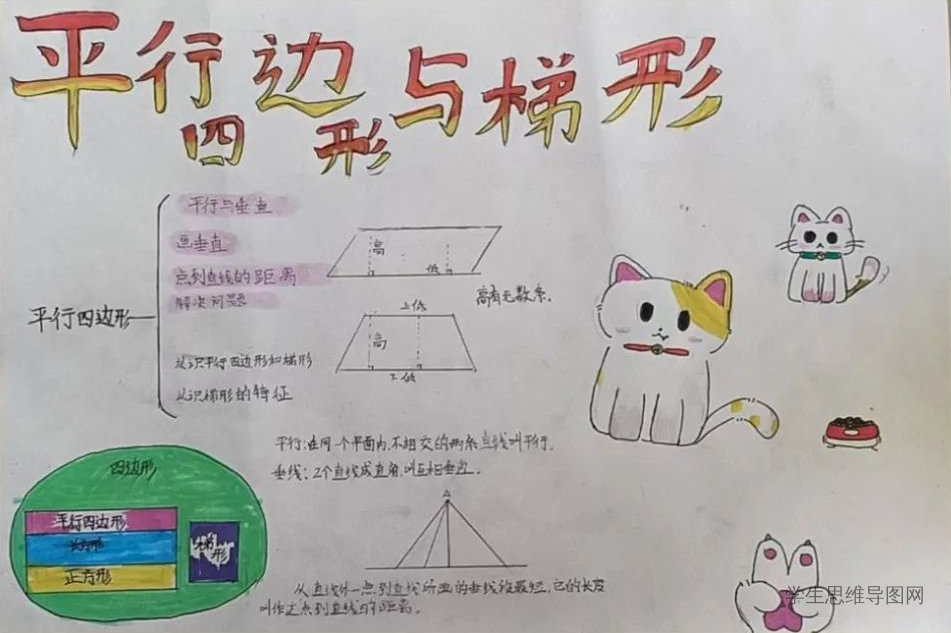 平行四边形与梯形
平行与垂直
画垂直
点到直线的距离
解决问题
平行四边形
认识平行四边形和梯形
认识梯形的特征
高
低
高有无数条。
上低
高
下低
平行:在同一个平面内,不相交的两条直线叫平行。
垂线:2个直线成直角,叫互相垂边。
四边形
平行四边形
长方形
正方形
梯形
从直线外一点到直线所画的垂线段最短,它的长度
叫作这点到直线的距离。
学生思维导图网